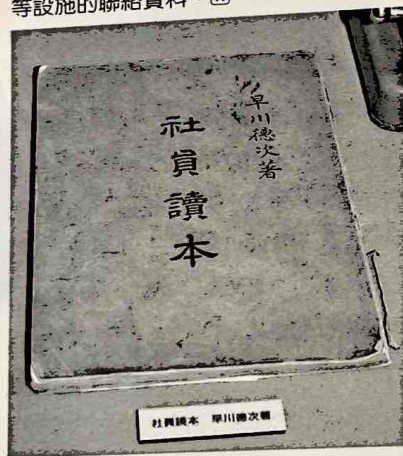 等設施的聯絡資料。
早川德次著
社員讀本
社員読本 早川徳次著